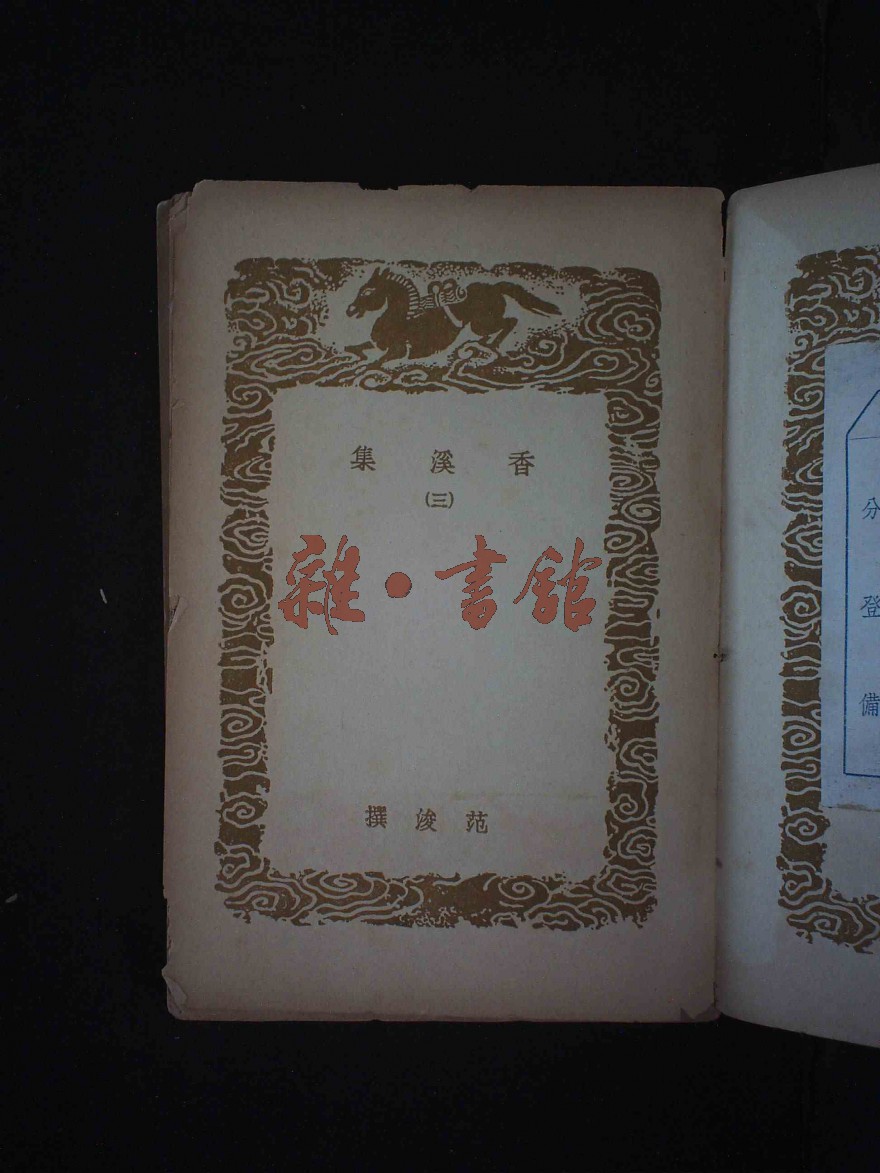 香溪集
(三)
雜·書館
范浚撰
分
登
備